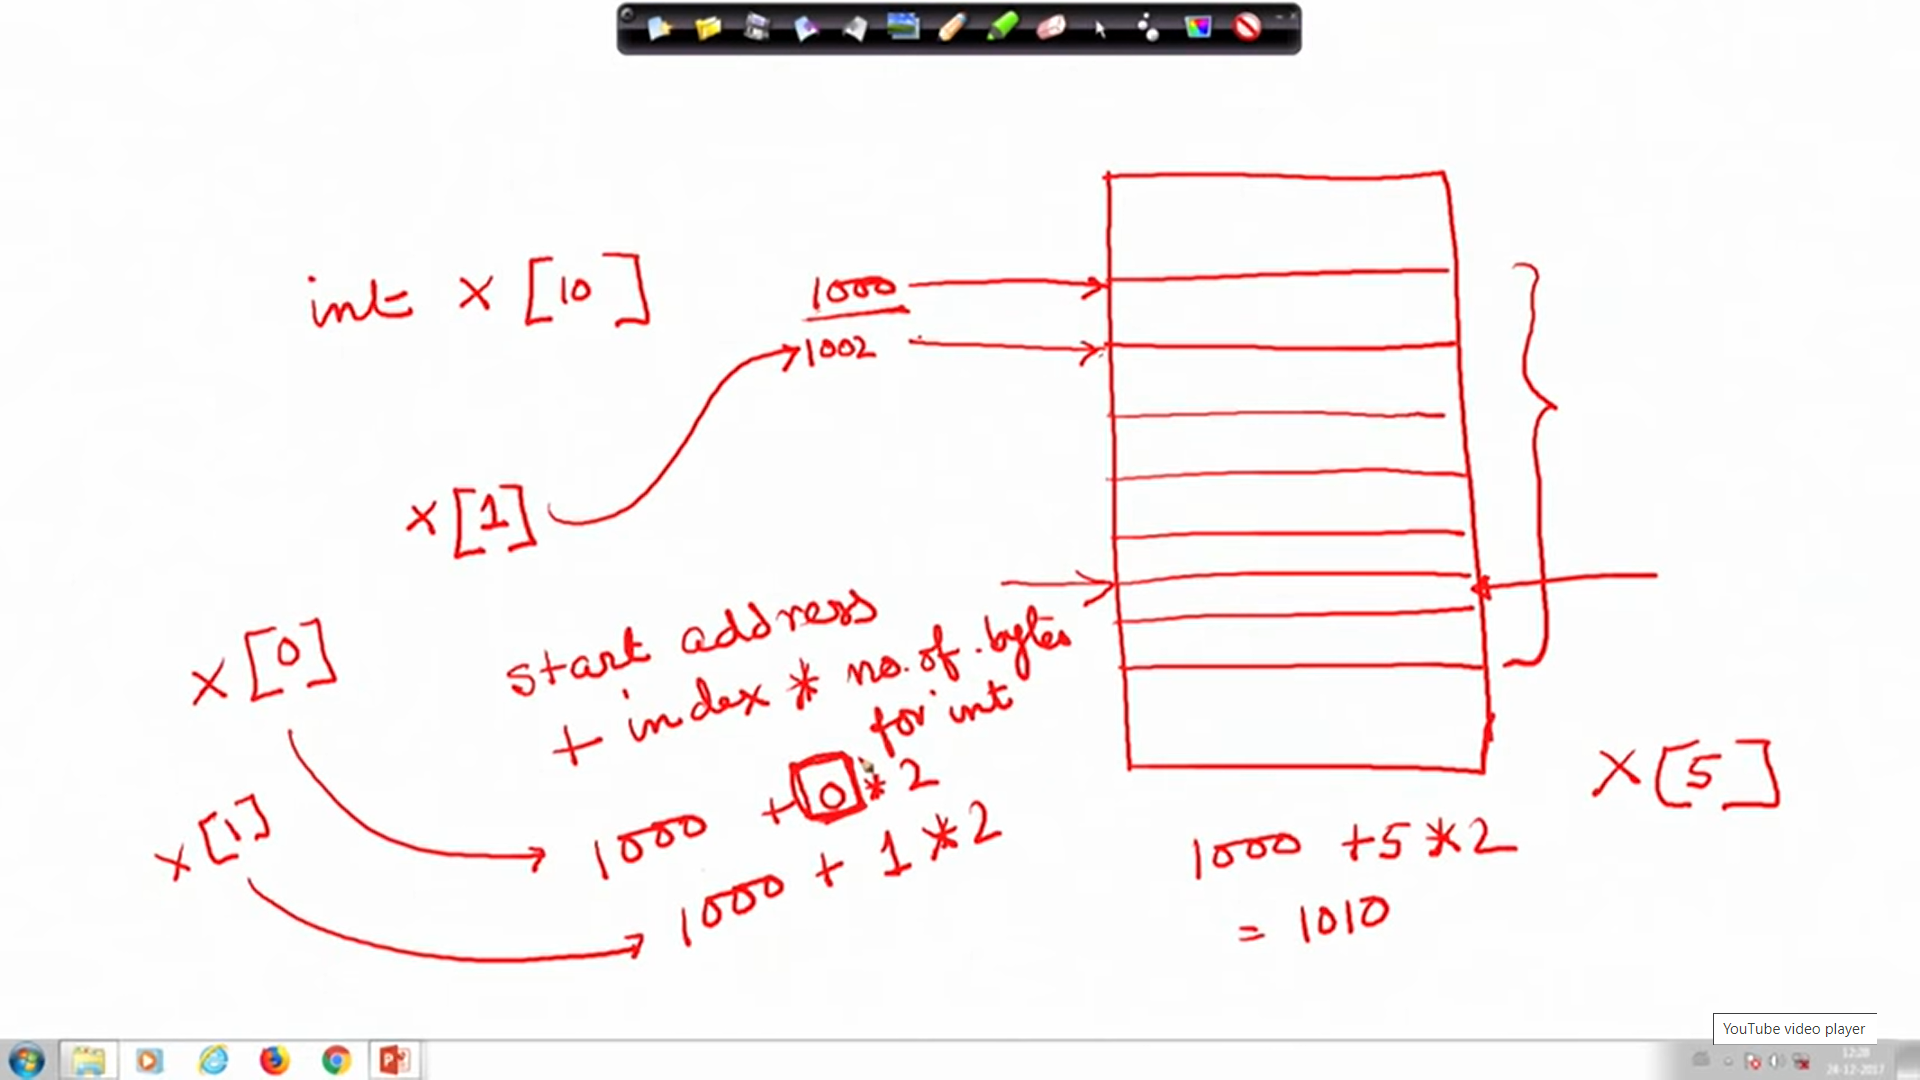 int x [10]
1000
1002
x [1]
x [0]
start address
+ index * no. of. bytes
for int
1000 + 0 * 2
x [1]
1000 + 1 * 2
x [5]
1000 + 5 * 2
= 1010
YouTube video player
12:28
24-12-2017